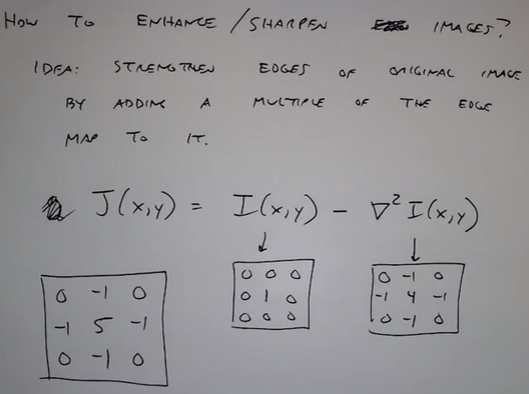 HOW TO ENHANCE/SHARPEN IMAGES?
IDEA: STRENGTHEN EDGES OF ORIGINAL IMAGE
BY ADDING A MULTIPLE OF THE EDGE
MAP TO IT.
J(x,y) = I(x,y) - ∇²I(x,y)
↓ ↓
0 -1 0
-1 5 -1
0 -1 0
0 0 0
0 1 0
0 0 0
0 -1 0
-1 4 -1
0 -1 0